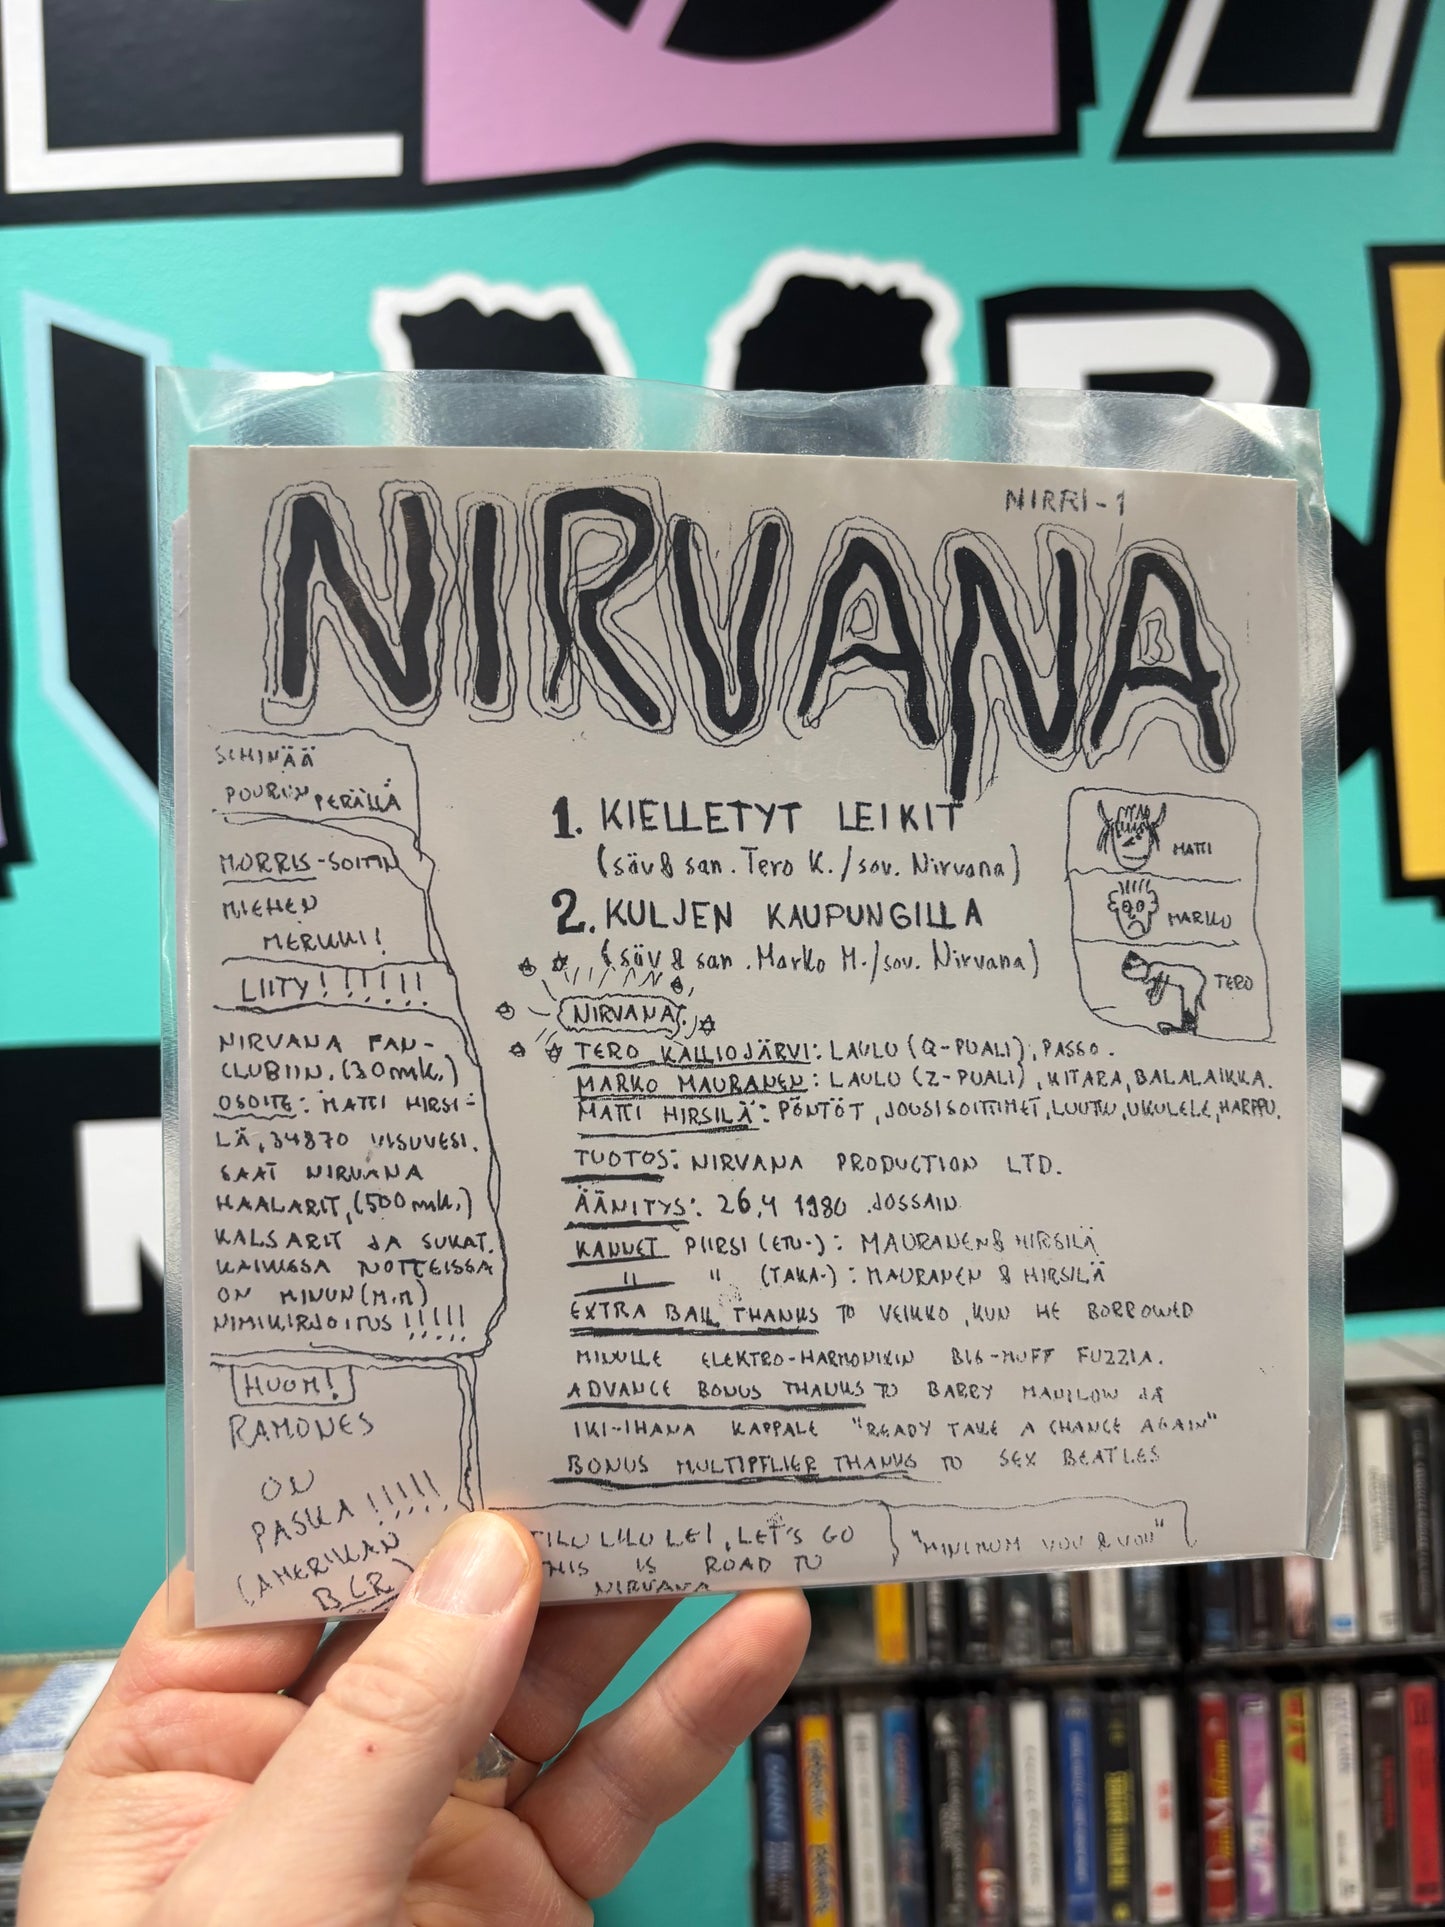 NIRRI-1
NIRVANA
SEHINÄÄ
POURUN PERÄLLÄ
MORRIS-SOITIN
MIEHEN
MERKKI!
LIITY!!!!!!
NIRVANA FAN-
CLUBIIN. (30mk.)
OSOITE: MATTI HIRSI-
LÄ, 34870 VISUVESI.
SAAT NIRVANA
HAALARIT, (500mk.)
KALSARIT JA SUKAT.
KAIKISSA NOTTEISSA
ON MINUN (M.M)
NIMIKIRJOITUS!!!!!
HUOM!
RAMONES
ON
PASKA!!!!!
(AMERIIKAN
BCR)
1. KIELLETYT LEIKIT
(säv & san. Tero K./sov. Nirvana)
2. KULJEN KAUPUNGILLA
(säv & san. Marko M./sov. Nirvana)
MATTI
MARKO
TERO
NIRVANA:
TERO KALLIOJÄRVI: LAULU (Q-PUALI), PASSO.
MARKO MAURANEN: LAULU (Z-PUALI), KITARA, BALALAIKKA.
MATTI HIRSILÄ: PÖNTÖT, JOUSISOITTIMET, LUUTTU, UKULELE, HARPPU.
TUOTOS: NIRVANA PRODUCTION LTD.
ÄÄNITYS: 26.4 1980 JOSSAIN
KANNET PIIRSI (ETU-): MAURANEN & HIRSILÄ
" " (TAKA-): MAURANEN & HIRSILÄ
EXTRA BAIL THANKS TO VEIKKO, KUN HE BORROWED
MINULLE ELEKTRO-HARMONIKIN BIG-MUFF FUZZIA.
ADVANCE BONUS THANKS TO BARRY MANILOW JA
IKI-IHANA KAPPALE "READY TAKE A CHANCE AGAIN"
BONUS MULTIPFLIER THANKS TO SEX BEATLES
TILU LILU LEI, LET'S GO
THIS IS ROAD TO
NIRVANA
"MINIMUM YOU & YOU"